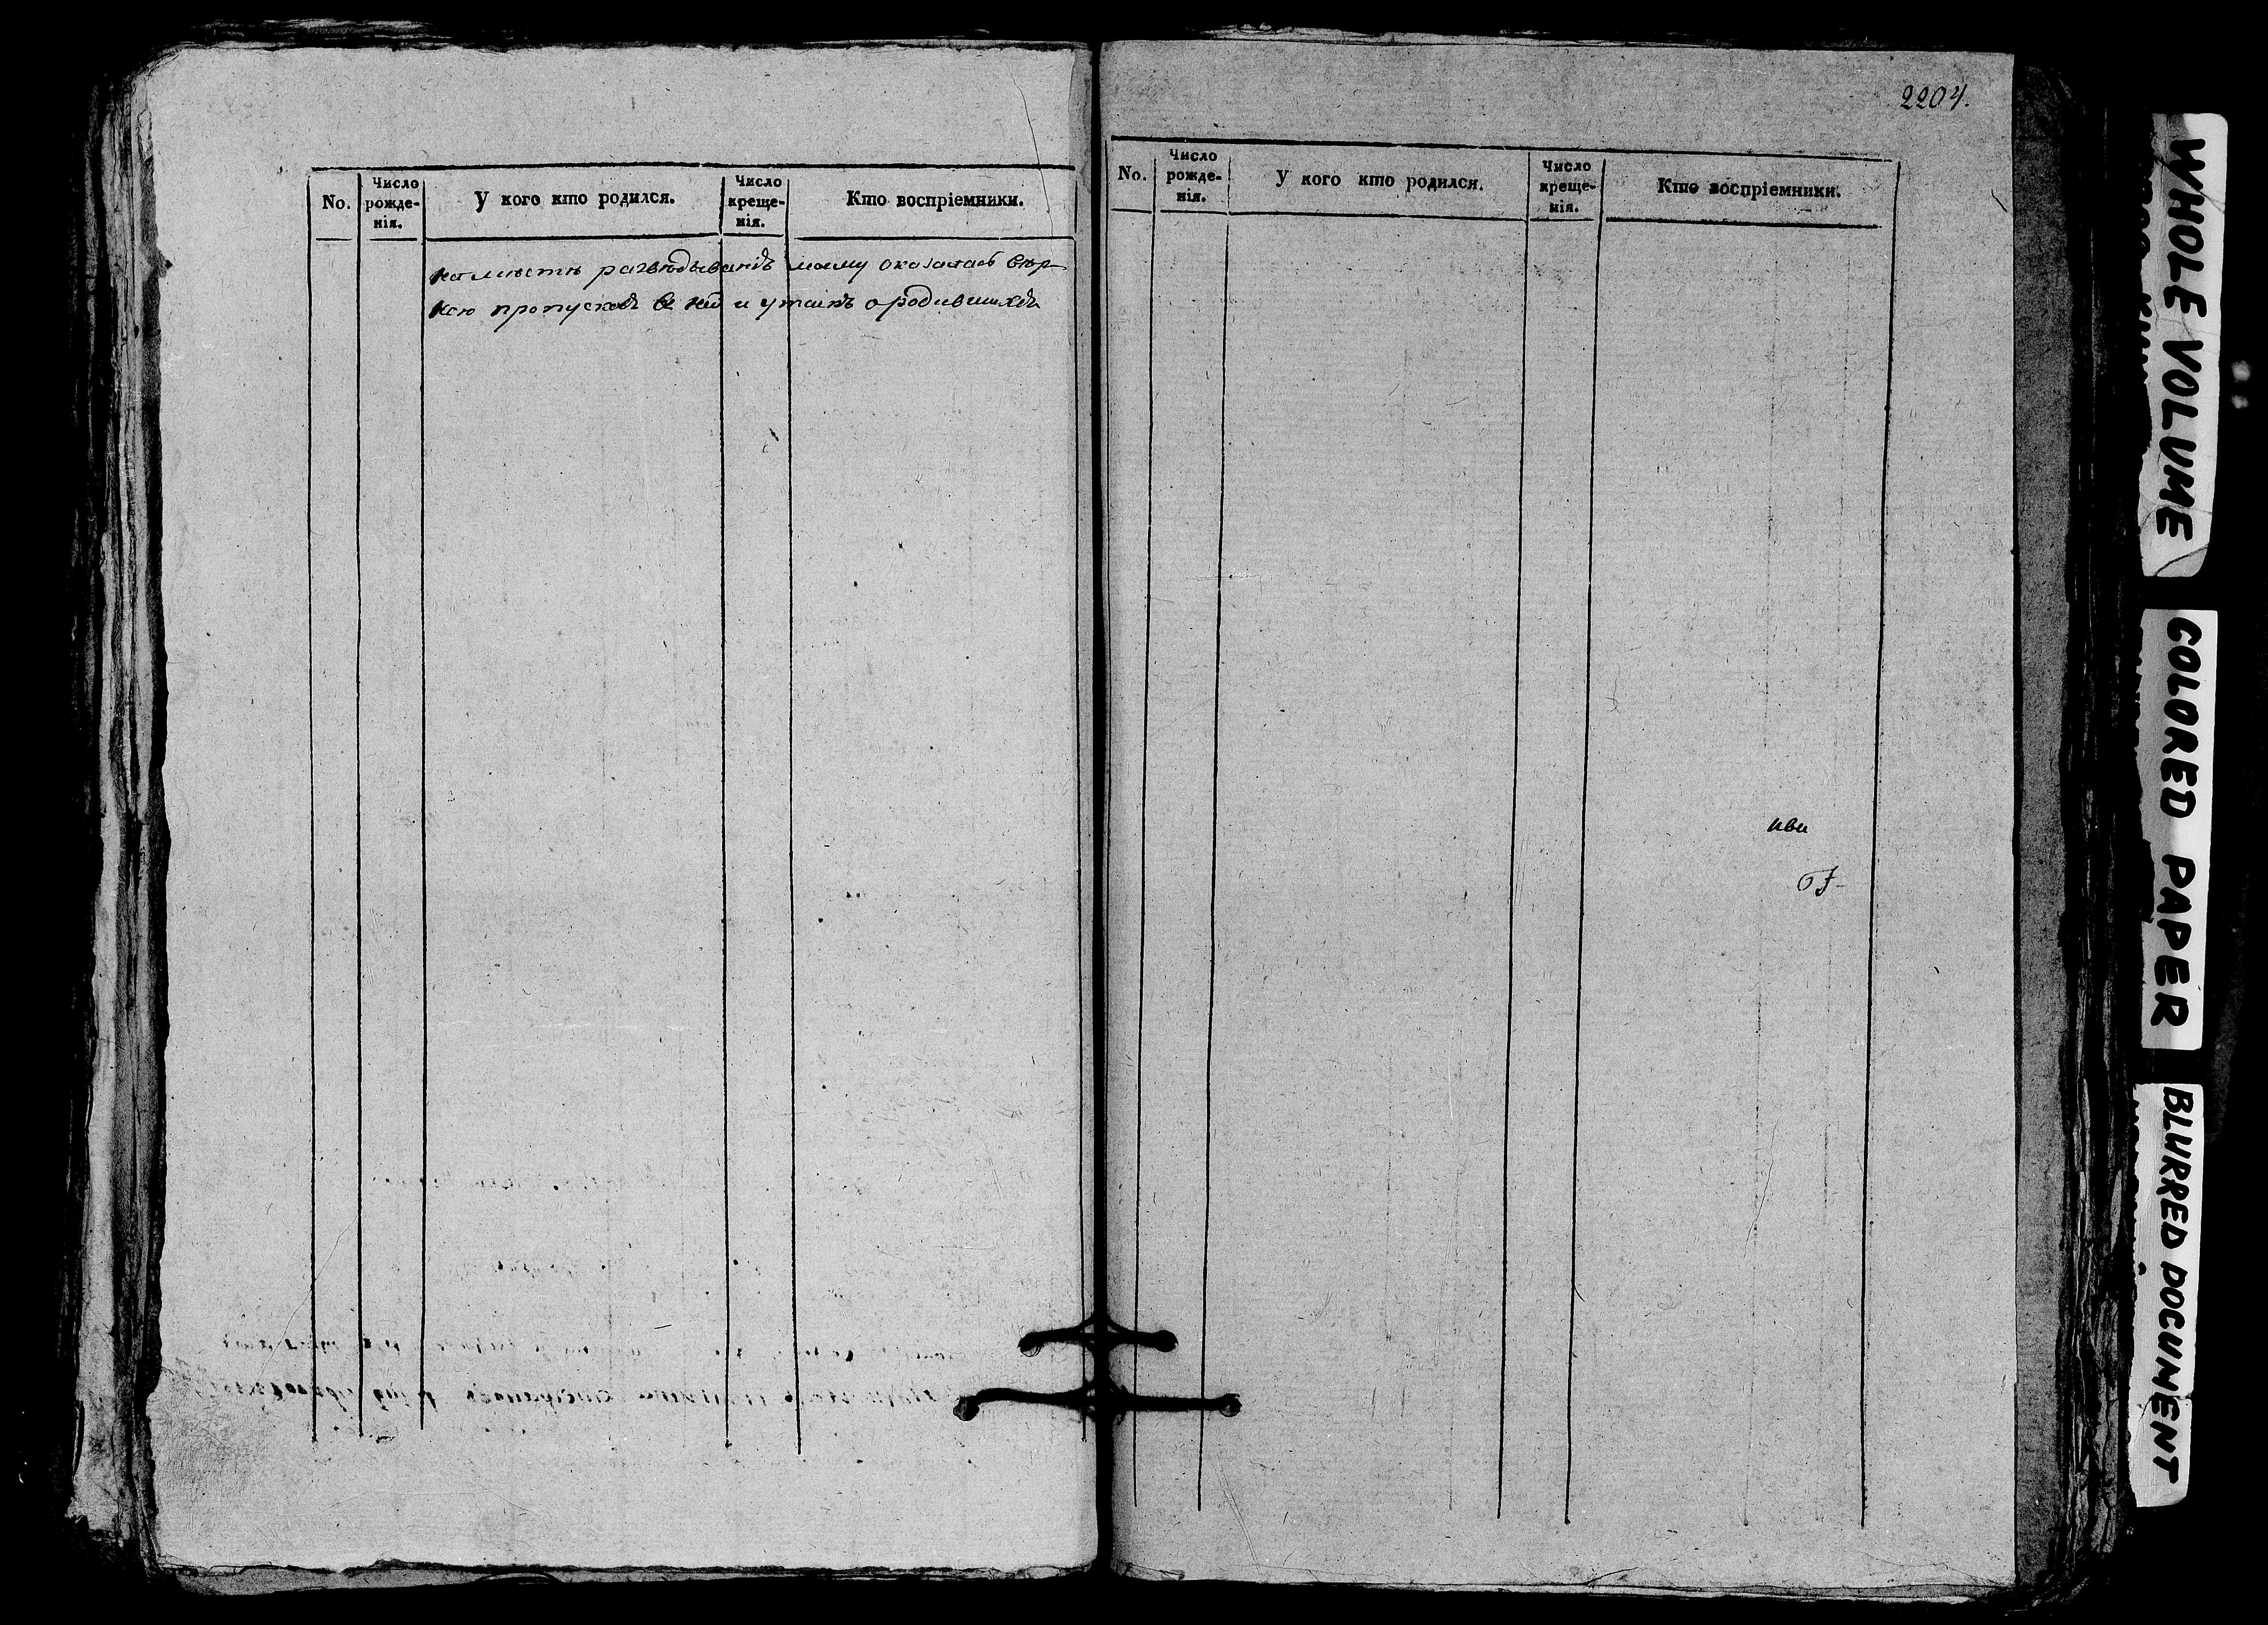 No.
Число рожде-нія.
У кого кто родился.
Число креще-нія.
Кто воспріемники.
на мѣстѣ развѣдыванію моему оказалась вѣр-
ною пропусковъ въ ней и утаекъ о родившихся
2204.
No.
Число рожде-нія.
У кого кто родился.
Число креще-нія.
Кто воспріемники.
WHOLE VOLUME
COLORED PAPER
BLURRED DOCUMENT